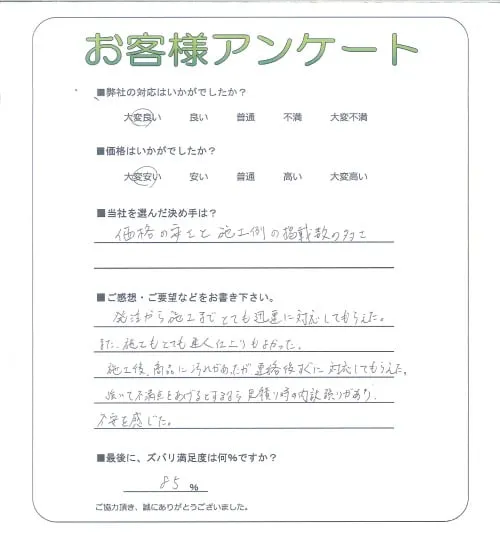 お客様アンケート
■弊社の対応はいかがでしたか？
大変良い 良い 普通 不満 大変不満
■価格はいかがでしたか？
大変安い 安い 普通 高い 大変高い
■当社を選んだ決め手は？
価格の安さと施工例の掲載数の多さ
■ご感想・ご要望などをお書き下さい。
発注から施工までとても迅速に対応してもらえた。
また、施工もとても達人仕上りもよかった。
施工後、商品に汚れがあったが連絡後すぐに対応してもらえた。
強いて不満点をあげるとするなら見積り時の内訳誤りがあり、
不安を感じた。
■最後に、ズバリ満足度は何％ですか？
85 %
ご協力頂き、誠にありがとうございました。